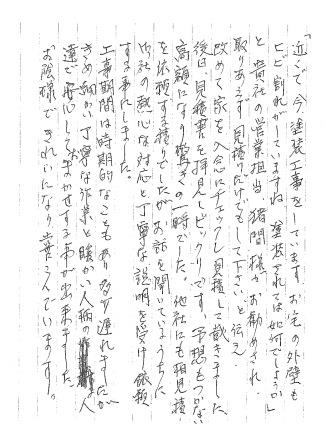 「近くで今塗装工事をしています。お宅の外壁も
ヒビ割れがしていますね 塗装されては如何でしょうか」
と貴社の営業担当 猪間様がお勧めされ、
取りあえず、見積りだけでもして下さい。と伝え、
改めて家を入念にチェックし見積して戴きました。
後日、見積書を拝見しビックリです。予想もつかない
高額になり驚きの一時でした。他社にも相見積
を依頼する積りでしたがお話を聞いているうちに
御社の熱心な対応と丁寧な説明を受け 依頼
する事にしました。
工事期間は時期的なこともあり多少遅れましたが
きめ細かい丁寧な作業と暖かい人柄の 人
達で安心しておまかせする事が出来ました。
お陰様できれいになり喜こんでいます。